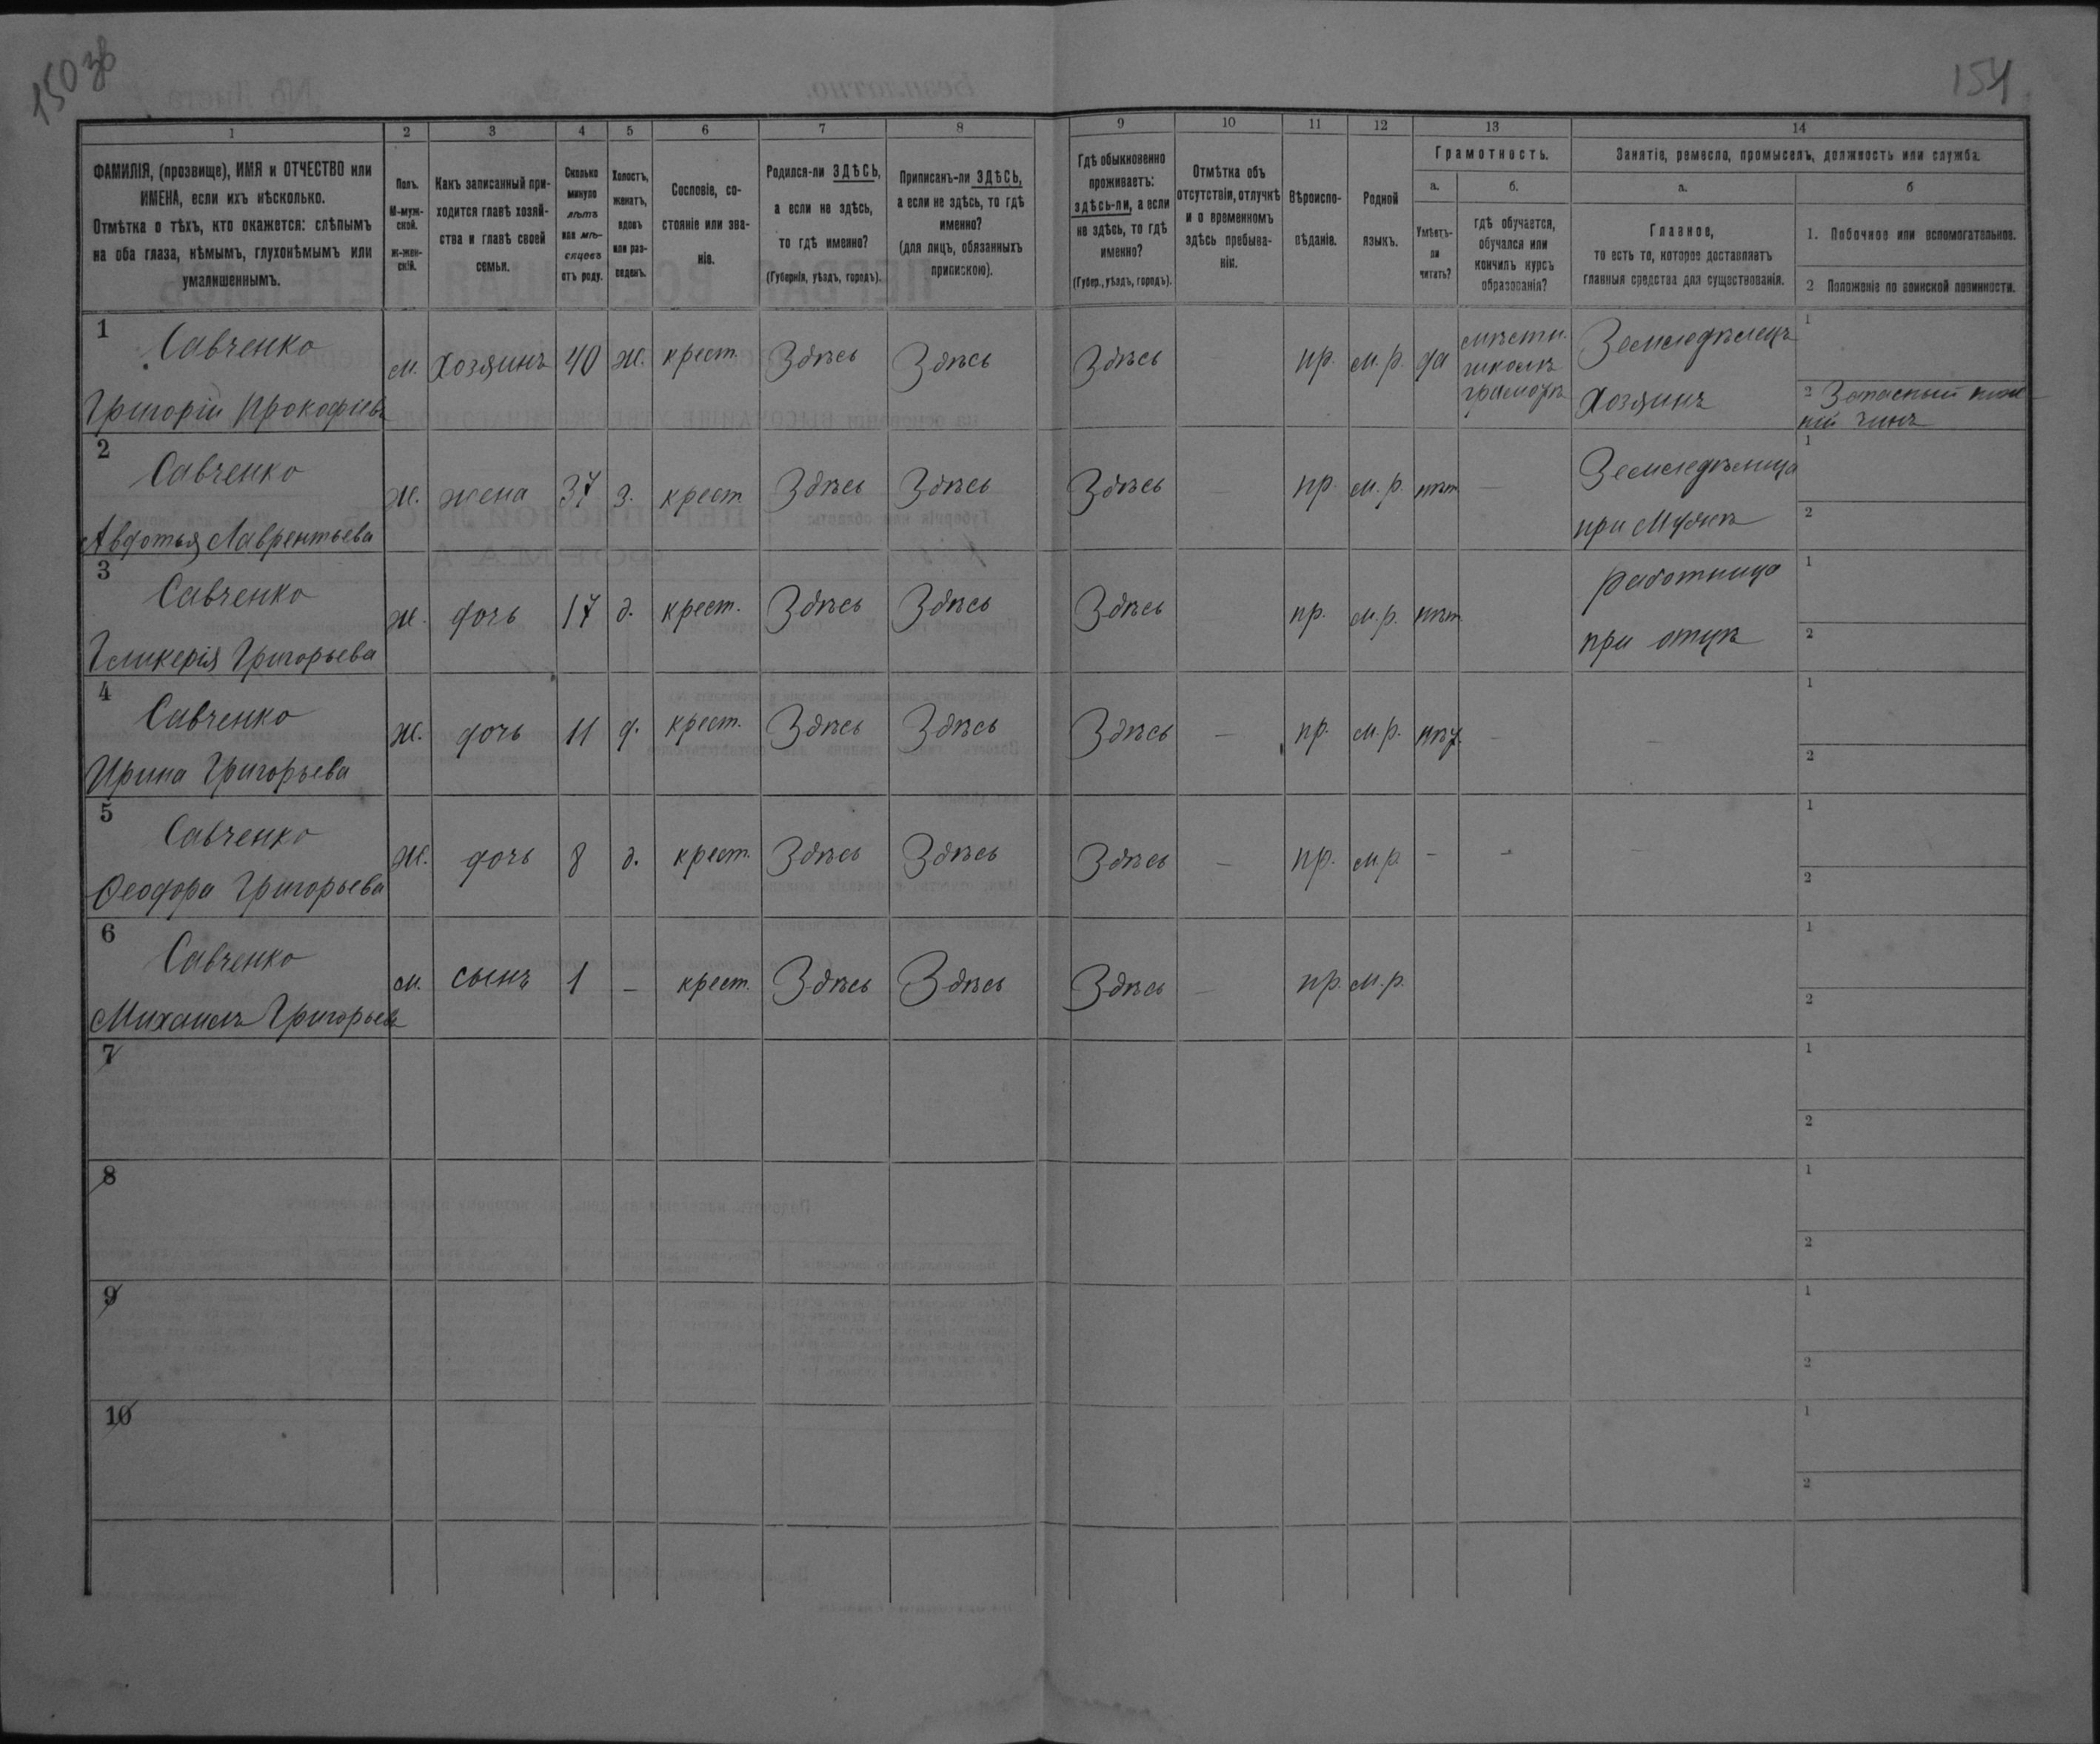 150 зв
154
1 2 3 4 5 6 7 8 9 10 11 12 13 14
ФАМИЛІЯ, (прозвище), ИМЯ и ОТЧЕСТВО или
ИМЕНА, если ихъ нѣсколько.
Отмѣтка о тѣхъ, кто окажется: слѣпымъ
на оба глаза, нѣмымъ, глухонѣмымъ или
умалишеннымъ.
Полъ.
М-муж-
ской.
ж-жен-
скій.
Какъ записанный при-
ходится главѣ хозяй-
ства и главѣ своей
семьи.
Сколько
минуло
лѣтъ
или мѣ-
сяцевъ
отъ роду.
Холостъ,
женатъ,
вдовъ
или раз-
веденъ.
Сословіе, со-
стояніе или зва-
ніе.
Родился-ли ЗДѢСЬ,
а если не здѣсь,
то гдѣ именно?
(Губернія, уѣздъ, городъ).
Приписанъ-ли ЗДѢСЬ,
а если не здѣсь, то гдѣ
именно?
(для лицъ, обязанныхъ
припискою).
Гдѣ обыкновенно
проживаетъ:
здѣсь-ли, а если
не здѣсь, то гдѣ
именно?
(Губер., уѣздъ, городъ).
Отмѣтка объ
отсутствіи, отлучкѣ
и о временномъ
здѣсь пребыва-
ніи.
Вѣроиспо-
вѣданіе.
Родной
языкъ.
Грамотность.
а.
Умѣетъ-
ли
читать?
б.
гдѣ обучается,
обучался или
кончилъ курсъ
образованія?
Занятіе, ремесло, промыселъ, должность или служба.
а.
Главное,
то есть то, которое доставляетъ
главныя средства для существованія.
б
1. Побочное или вспомогательное.
2 Положеніе по воинской повинности.
1
Савченко
Григорій Прокофіевъ
м. Хозяинъ 40 ж. крест. Здѣсь Здѣсь Здѣсь пр. м.р. да
мѣстн.
школѣ
грамотѣ
Земледѣлецъ
Хозяинъ
1
2 Запасный ниж-
ній чинъ
2
Савченко
Авдотья Лаврентьева
ж. жена 37 з. крест Здѣсь Здѣсь Здѣсь — пр. м.р. нѣт —
Земледѣлица
при Мужѣ
1
2
3
Савченко
Гликерія Григорьева
ж. дочь 17 д. крест. Здѣсь Здѣсь Здѣсь пр. м.р. нѣт
работница
при отцѣ
1
2
4
Савченко
Ирина Григорьева
ж. дочь 11 д. крест. Здѣсь Здѣсь Здѣсь — пр. м.р. нѣт — —
1
2
5
Савченко
Ѳеодора Григорьева
ж. дочь 8 д. крест. Здѣсь Здѣсь Здѣсь — пр. м.р — — —
1
2
6
Савченко
Михаилъ Григорьевъ
м. сынъ 1 — крест. Здѣсь Здѣсь Здѣсь — пр. м.р.
1
2
7
1
2
8
1
2
9
1
2
10
1
2